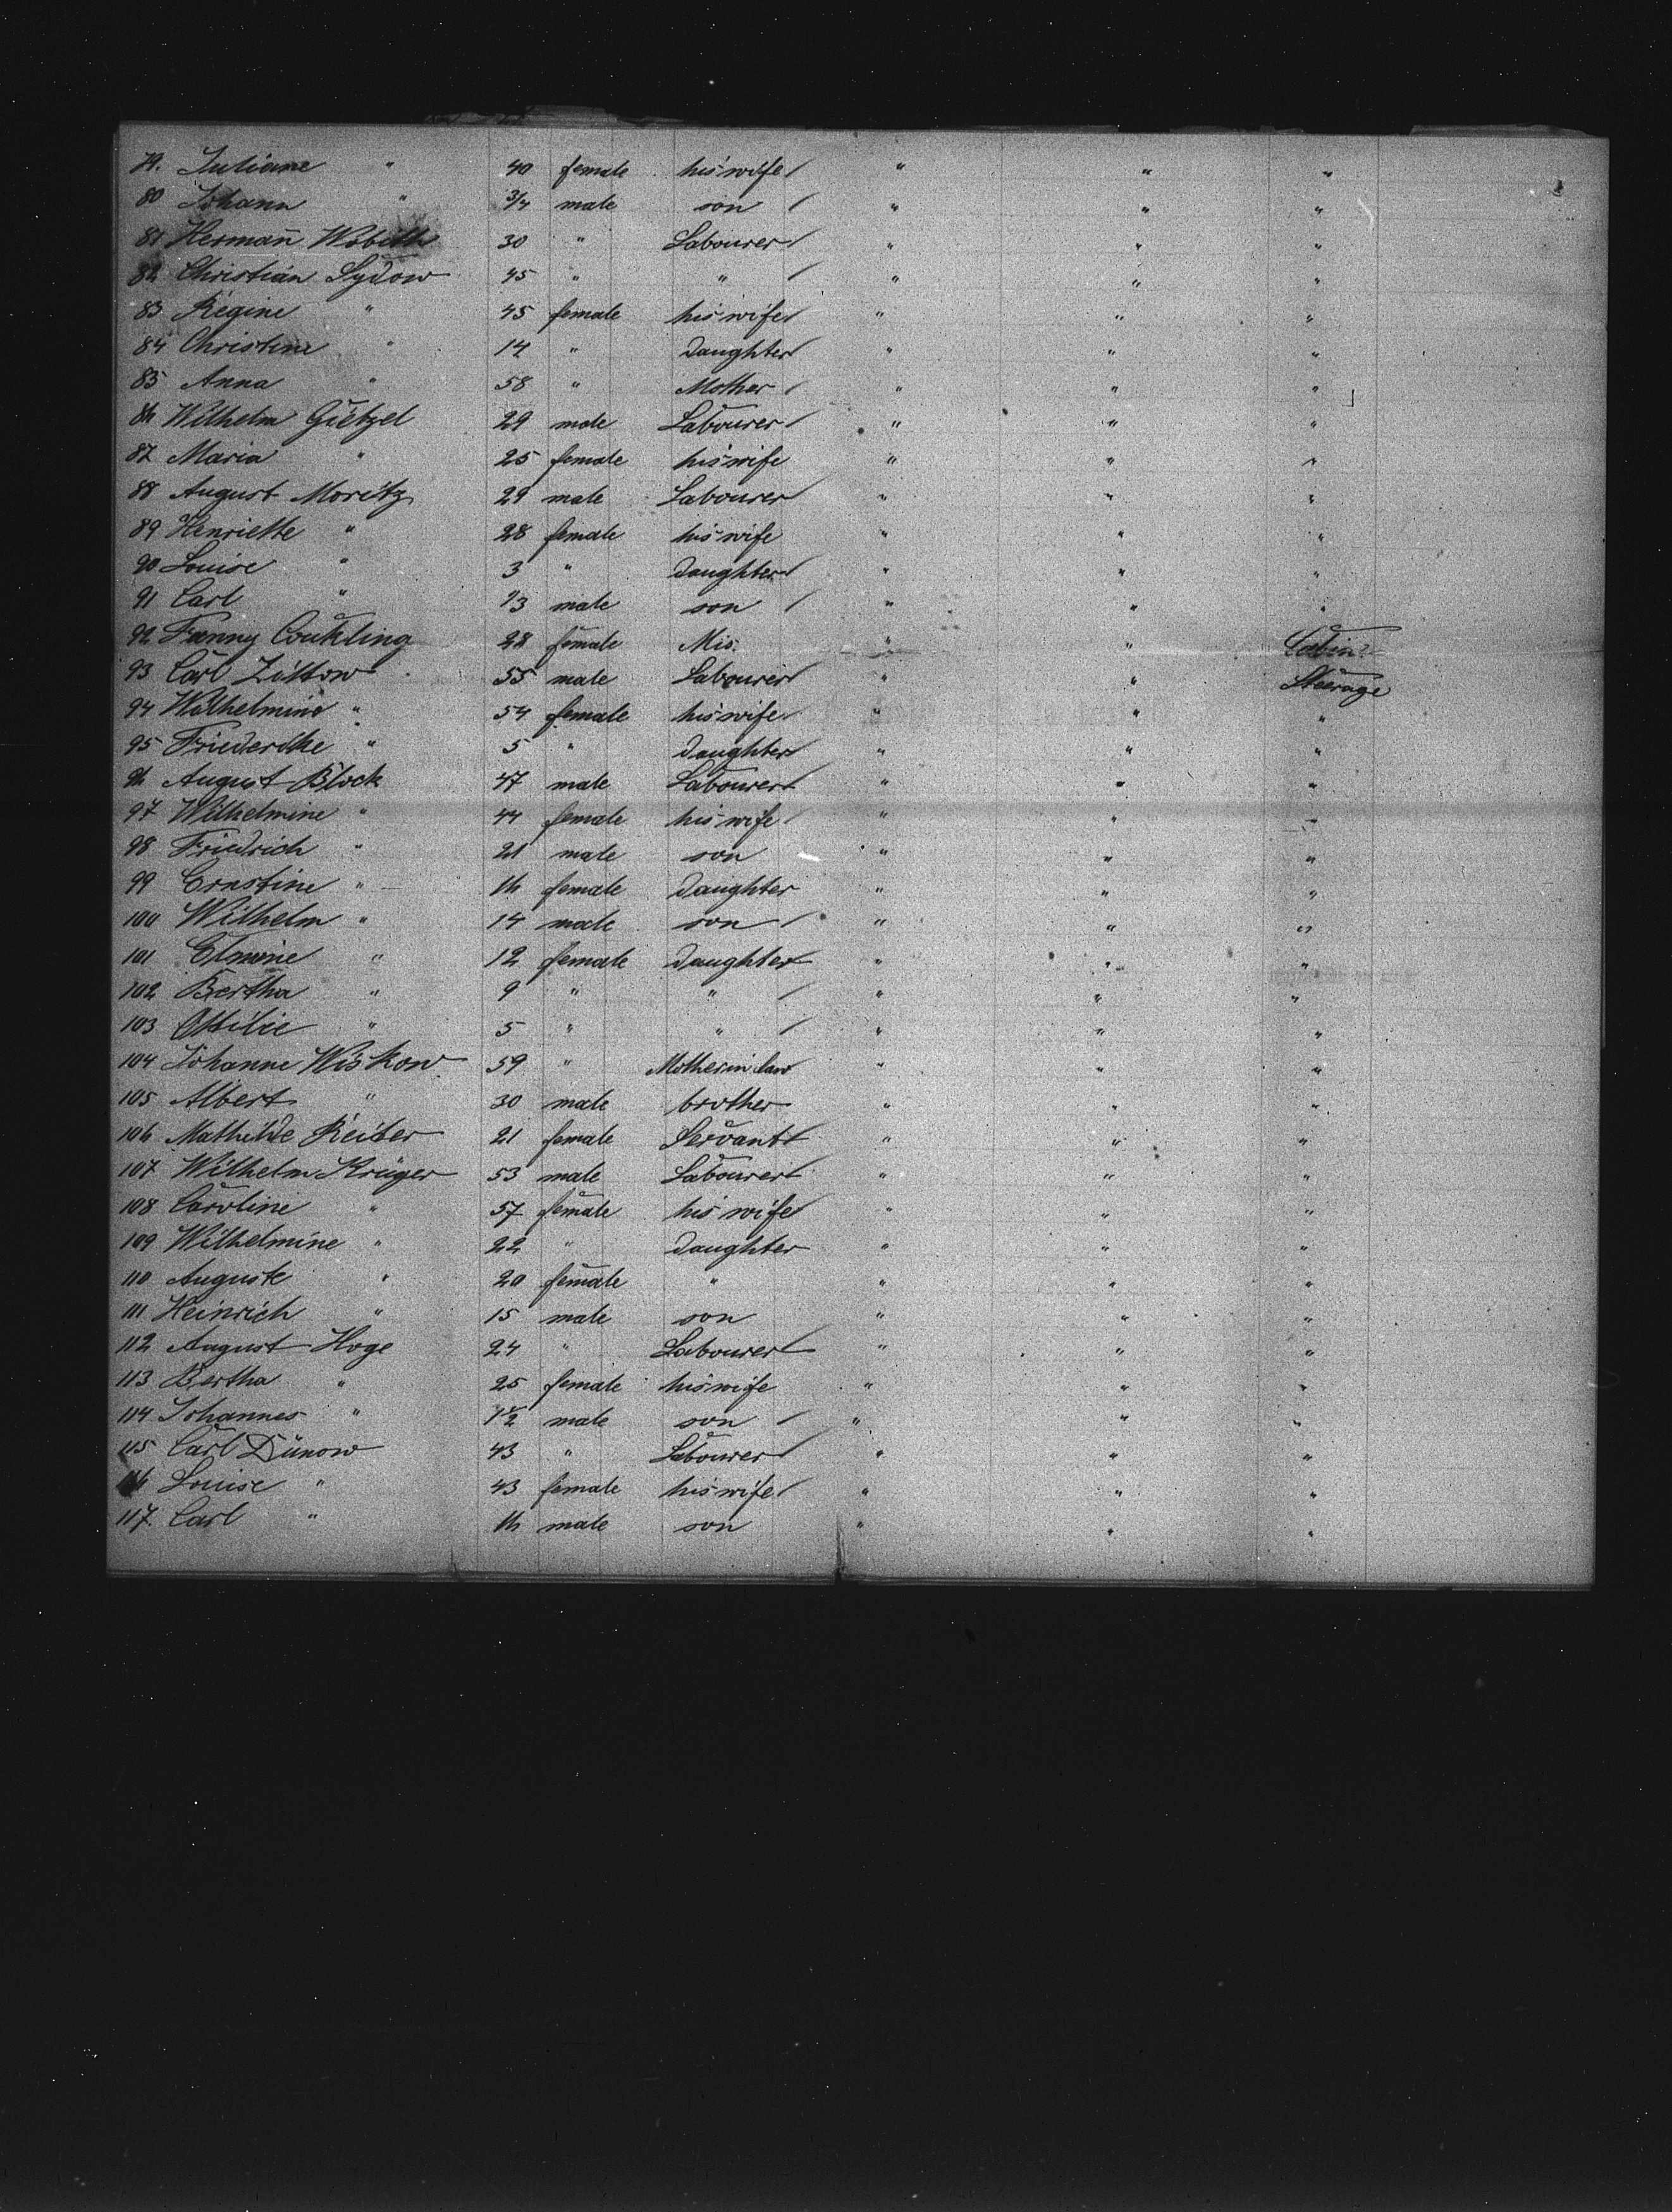 79. Juliane " 40 female his wife / " " "
80 Johann " 3/4 male son / " " "
81 Hermañ Wobith 30 " Labourer / " " "
82 Christian Sydow 45 " " / " " "
83 Regine " 45 female his wife / " " "
84 Christine " 14 " daughter / " " "
85 Anna " 58 " Mother / " " "
86 Wilhelm Gietzel 29 male Labourer / " " "
87 Maria " 25 female his wife " " "
88 August Moritz 29 male Labourer / " " "
89 Henriette " 28 female his wife " " "
90 Louise " 3 " daughter / " " "
91 Carl " 1/3 male son / " " "
92 Fanny Conkling 28 female Mis. " " Cabin
93 Carl Zittow 55 male Labourer / " " Steerage
94 Wilhelmine " 54 female his wife / " " "
95 Friedericke " 5 " daughter / " " "
96 August Block 47 male Labourer / " " "
97 Wilhelmine " 44 female his wife / " " "
98 Friedrich " 21 male son " " "
99 Ernstine " 16 female daughter " " "
100 Wilhelm " 14 male son / " " "
101 Elmine " 12 female daughter / " " "
102 Bertha " 9 " " / " " "
103 Ottilie " 5 " " / " " "
104 Johanne Wiskow 59 " Mother in law " " "
105 Albert " 30 male brother " " "
106 Mathilde Reiter 21 female Servant / " " "
107 Wilhelm Krüger 53 male Labourer / " " "
108 Caroline " 57 female his wife / " " "
109 Wilhelmine " 22 " daughter " " "
110 Auguste " 20 female " " " "
111 Heinrich " 15 male son " " "
112 August Hoge 24 " Labourer / " " "
113 Bertha " 25 female his wife " " "
114 Johannes " 1 1/2 male son / " " "
115 Carl Dünow 43 " Labourer / " " "
116 Louise " 43 female his wife / " " "
117. Carl " 16 male son " " "